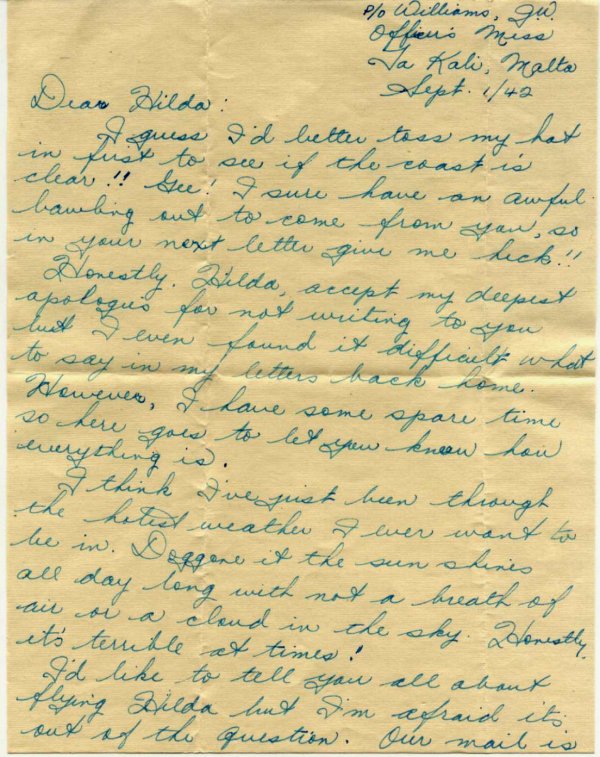 P/O Williams, J.W.
Officer's Mess
Ta Kali, Malta
Sept. 1/42
Dear Hilda:
I guess I'd better toss my hat
in first to see if the coast is
clear!! Gee! I sure have an awful
bawling out to come from you, so
in your next letter give me heck!!
Honestly, Hilda, accept my deepest
apologies for not writing to you
but I even found it difficult what
to say in my letters back home.
However, I have some spare time
so here goes to let you know how
everything is.
I think I've just been through
the hotest weather I ever want to
be in. Doggone it the sun shines
all day long with not a breath of
air or a cloud in the sky. Honestly,
it's terrible at times!
I'd like to tell you all about
flying Hilda but I'm afraid its
out of the question. Our mail is